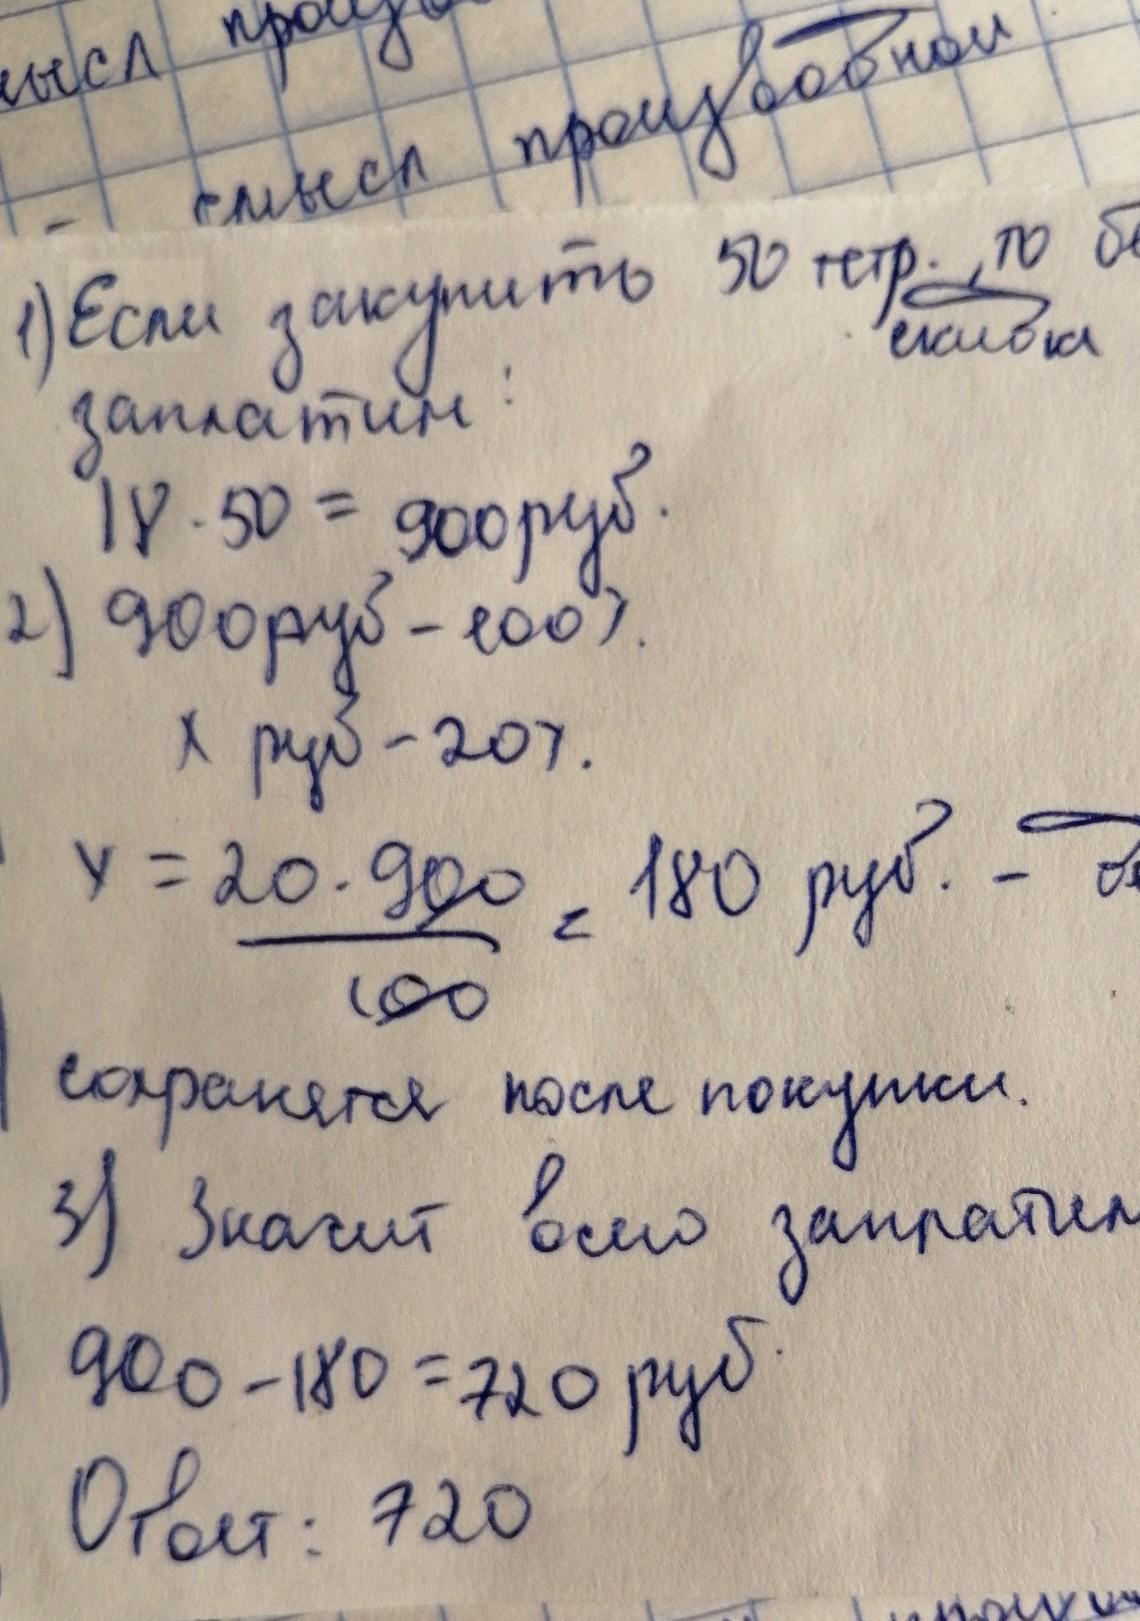 смысл производной
1) Если закупить 50 тетр., то
скидки
заплатим:
18 · 50 = 900 руб.
2) 900 руб - 100%.
x руб - 20%.
x = 20 · 900 / 100 = 180 руб. -
сохранятся после покупки.
3) Значит всего заплатим
900 - 180 = 720 руб.
Ответ: 720